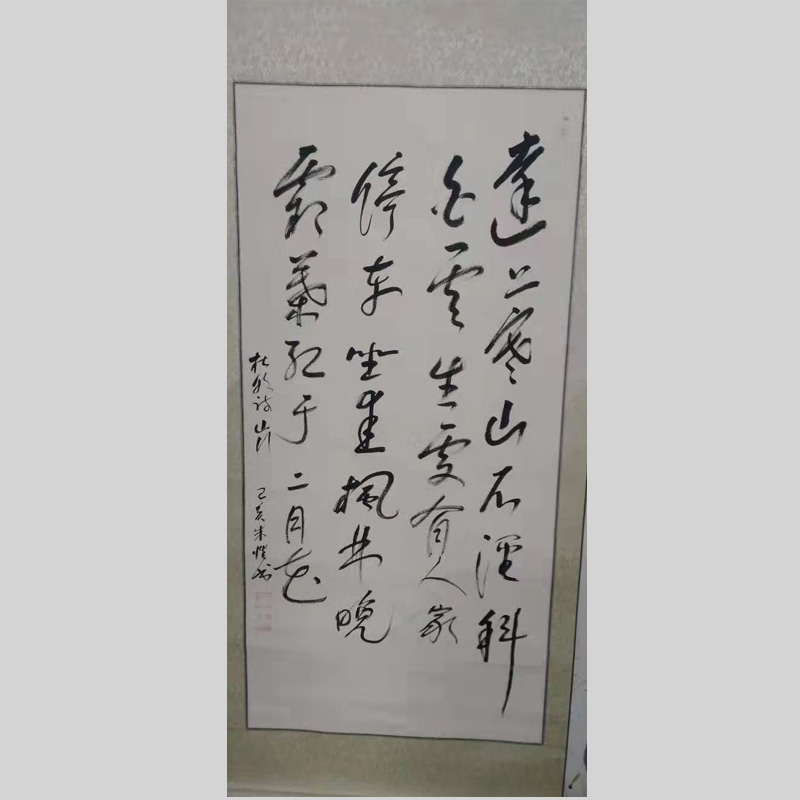 遠上寒山石徑斜
白雲生處有人家
停車坐愛楓林晚
霜葉紅于二月花
杜牧詩山行 己亥朱書